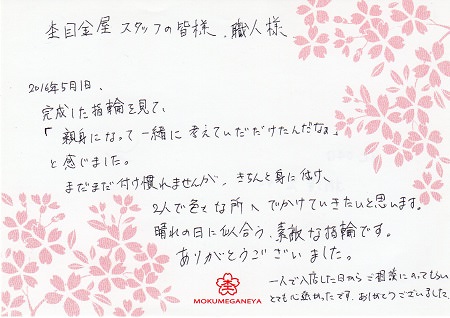 杢目金屋 スタッフの皆様、職人様
2016年5月1日、
完成した指輪を見て、
「親身になって一緒に考えていただけたんだなぁ」
と感じました。
まだまだ付け慣れませんが、きちんと身に付け、
2人で色々な所へでかけていきたいと思います。
晴れの日に似合う、素敵な指輪です。
ありがとうございました。
一人で入店した日からご相談にのってもらい
とても心強かったです。ありがとうございました
MOKUMEGANEYA